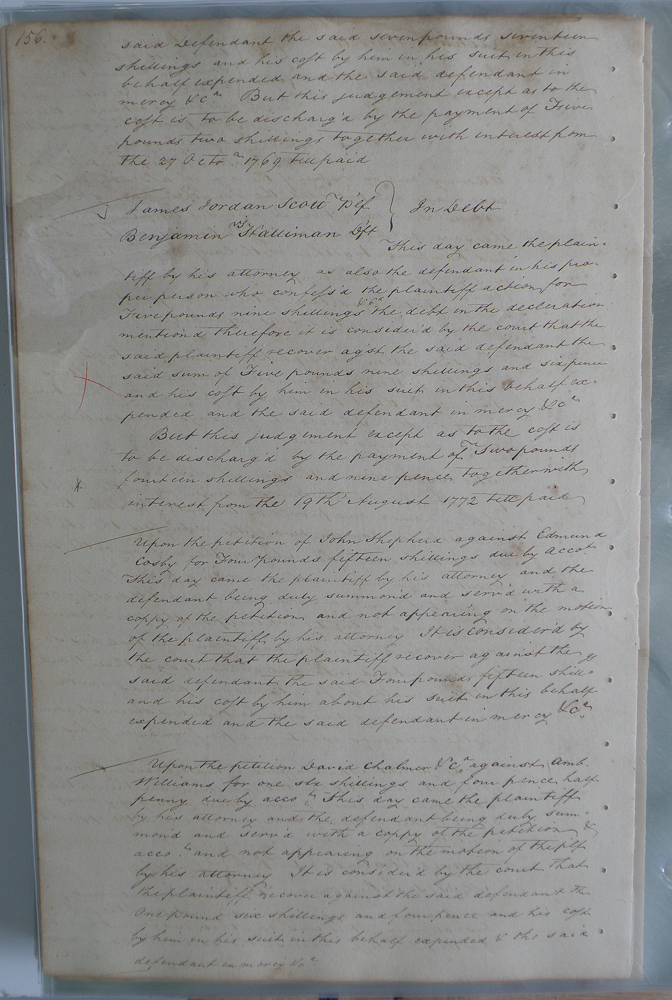 156.
said Defendant the said seven pounds seventeen
shillings and his cost by him in his suit in this
behalf expended and the said defendant in
mercy &c.a But this judgement except as to the
cost is to be discharg'd by the payment of Five
pounds two shillings together with interest from
the 27 Octr. 1769 till paid
James Jordan Scott Plf } In Debt
Benjamin Stalliman Dft
This day came the plain=
tiff by his attorney as also the defendant in his pro=
per person who confess'd the plaintiff action for
Five pounds nine shillings & 6d the debt in the decleration
mention'd therefore it is consider'd by the court that the
said plaintiff recover agst the said defendant the
said sum of Five pounds nine shillings and sixpence
and his cost by him in his suit in this behalf ex=
pended and the said defendant in mercy &c.a
But this judgement except as to the cost is
to be discharg'd by the payment of Two pounds
fourteen shillings and nine pence together with
interest from the 19th August 1772 till paid
Upon the petition of John Shepherd against Edmund
Cosby for Four pounds fifteen shillings due by accot
This day came the plaintiff by his attorney and the
defendant being duly summon'd and serv'd with a
coppy of the petition and not appearing on the motion
of the plaintiff by his attorney It is consider'd by
the court that the plaintiff recover against the
said defendant the said Four pounds fifteen shill=gs
and his cost by him about his suit in this behalf
expended and the said defendant in mercy &c.a
Upon the petition David Chalmer &c.a against Amb.
Williams for one six shillings and four pence half
penny due by acco.t This day came the plaintiff
by his attorney and the defendant being duly sum=
mon'd and serv'd with a coppy of the petition &
acco.t and not appearing on the motion of the plf
by his attorney It is consider'd by the court that
the plaintiff recover against the said defendant the
one pound six shillings and four pence and his cost
by him in his suit in this behalf expended & the said
defendant in mercy &c.a